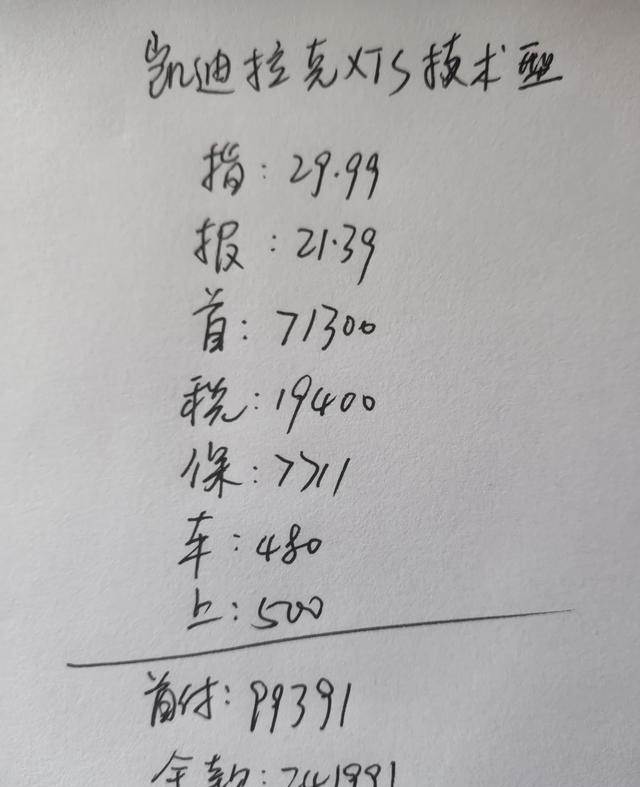 凯迪拉克XTS技术型
指:29.99
报:21.39
首:71300
税:19400
保:7711
车:480
上:500
首付:99391
全款:241991